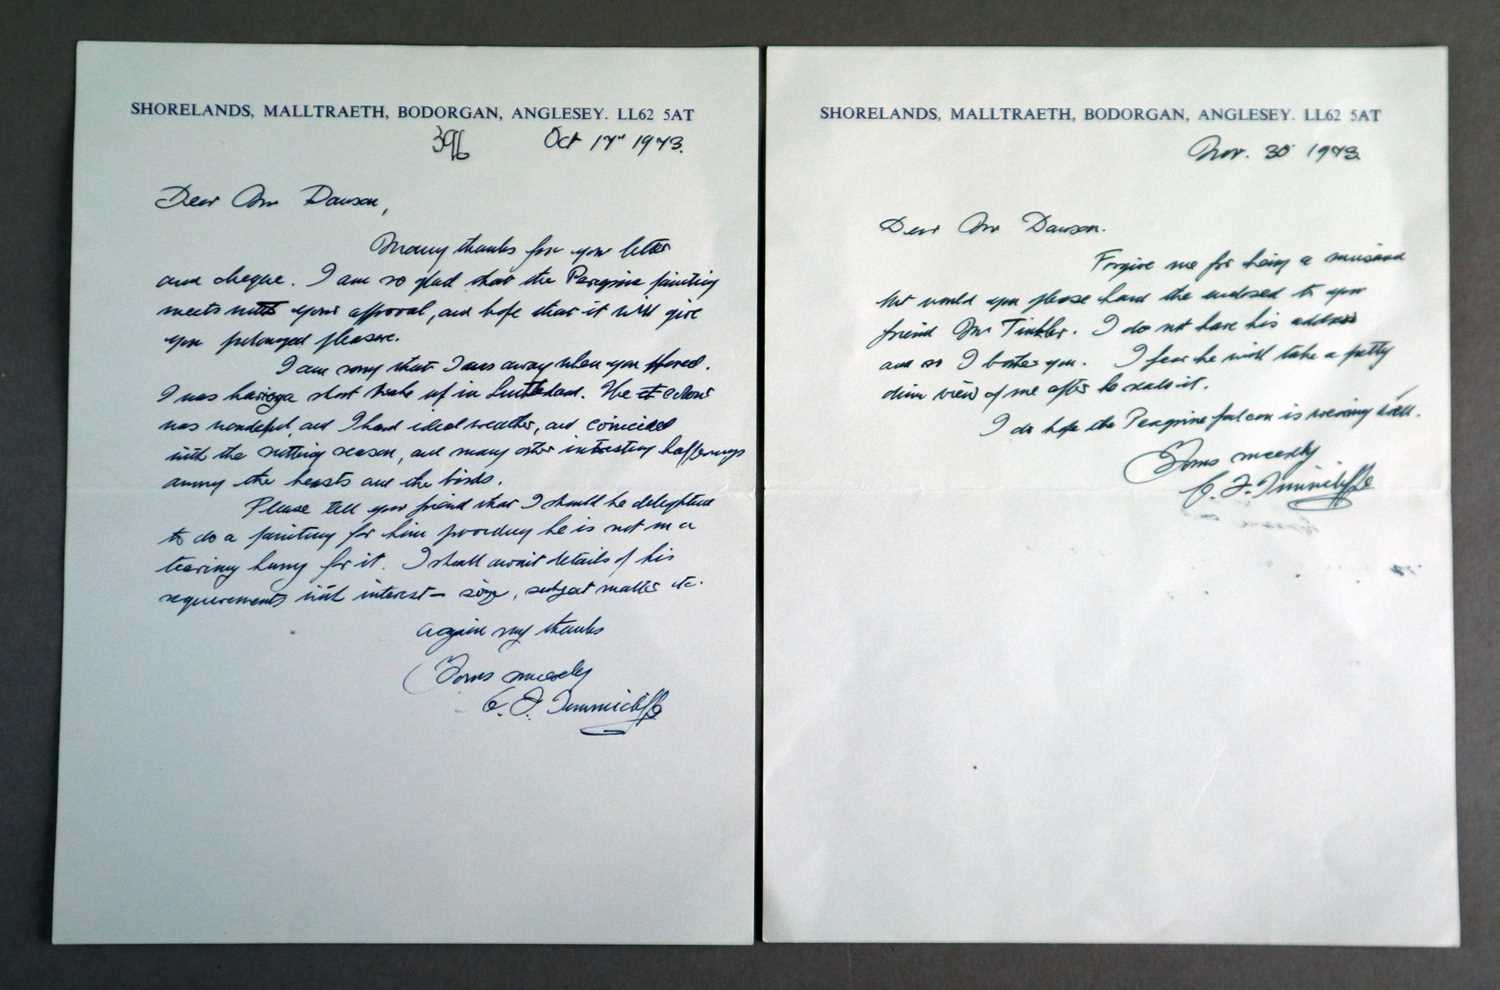 SHORELANDS, MALLTRAETH, BODORGAN, ANGLESEY. LL62 5AT
396
Oct 17th 1973.
Dear Mr Dawson,
Many thanks for your letter
and cheque. I am so glad that the Peregrine painting
meets with your approval, and hope that it will give
you prolonged pleasure.
I am sorry that I was away when you phoned.
I was having a short break up in Scotland. The colour
was wonderful, and I had ideal weather, and coincided
with the rutting season, and many other interesting happenings
among the beasts and the birds.
Please tell your friend that I should be delighted
to do a painting for him providing he is not in a
tearing hurry for it. I shall await details of his
requirements with interest – size, subject matter etc.
Again my thanks
Yours sincerely
C. F. Tunnicliffe
SHORELANDS, MALLTRAETH, BODORGAN, ANGLESEY. LL62 5AT
Nov. 30 1973.
Dear Mr Dawson.
Forgive me for being a nuisance
but would you please hand the enclosed to your
friend Mr Tinkler. I do not have his address
and so I bother you. I fear he will take a pretty
dim view of me after he reads it.
I do hope the Peregrine falcon is wearing well.
Yours sincerely
C. F. Tunnicliffe